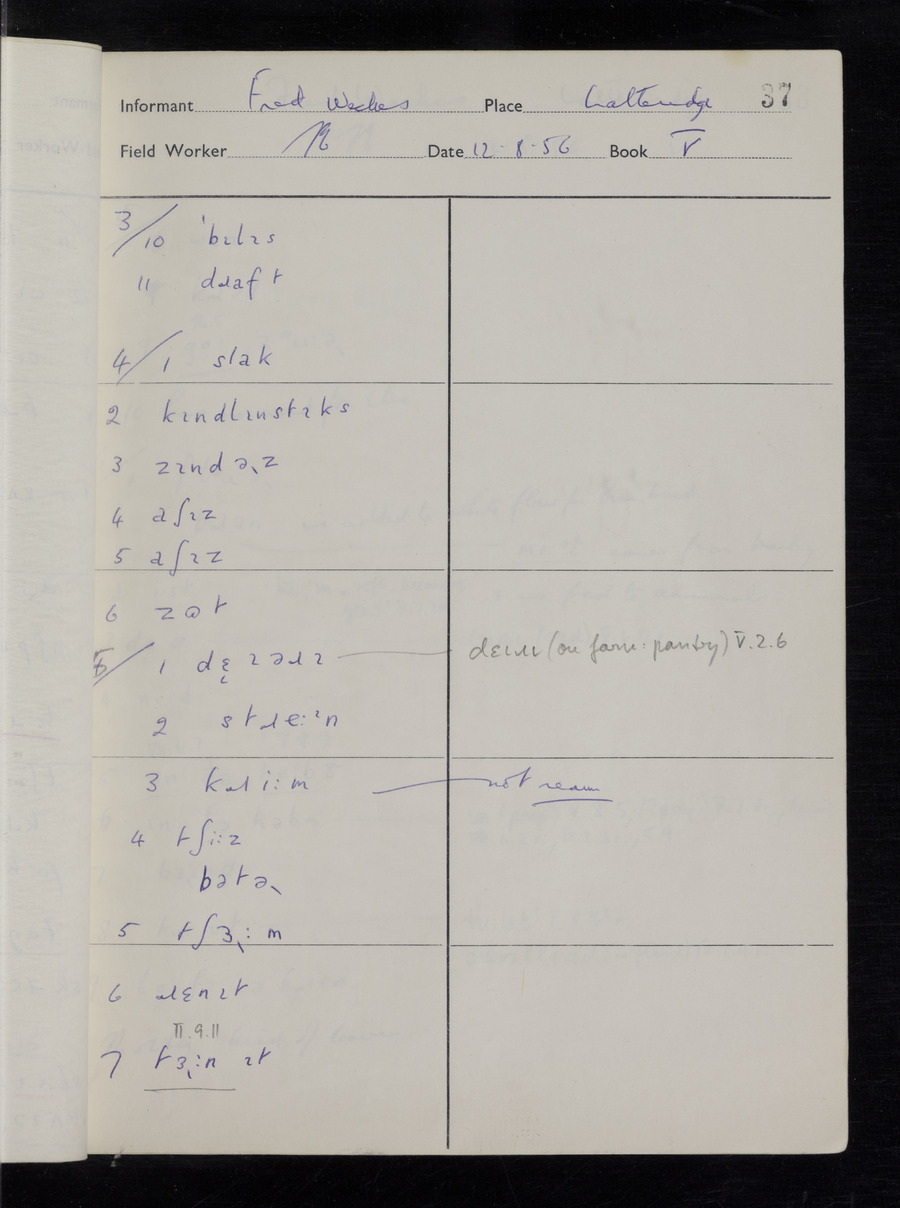 Informant Fred Weekes Place Latteridge 37
Field Worker Date 12·8·56 Book V
3/10 ˈbɪlɪs
11 dɹaft
4/1 slak
2 kɪndlɪnstɪks
3 zɪndəʴz
4 aʃɪz
5 aʃɪz
6 zɒt
5/1 dɛ̨ɪəɹɪ dɛɪɹɪ (on farm: pantry) V.2.6
2 stɹɛːⁱn
3 kɹiːm not ream
4 tʃiːz
bətəʴ
5 tʃɜʴːm
6 ɹɛnɪt
II.9.11
7 tɜʴːn ɪt